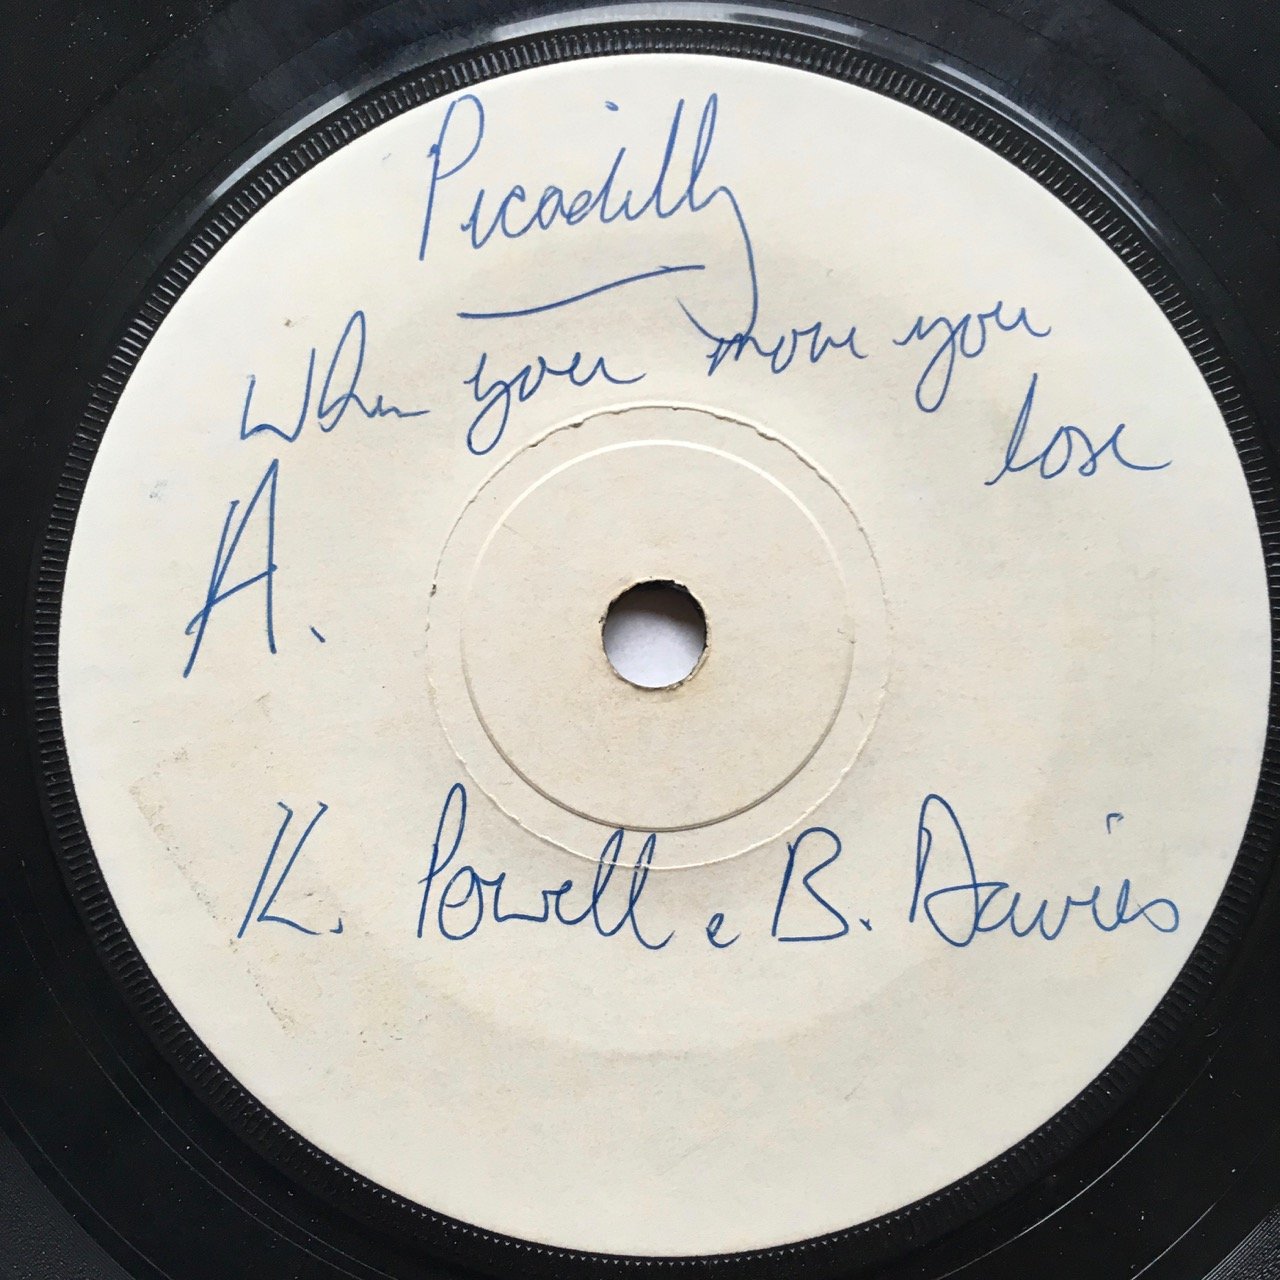 Picadilly
When you move you
lose
A.
K. Powell & B. Davies